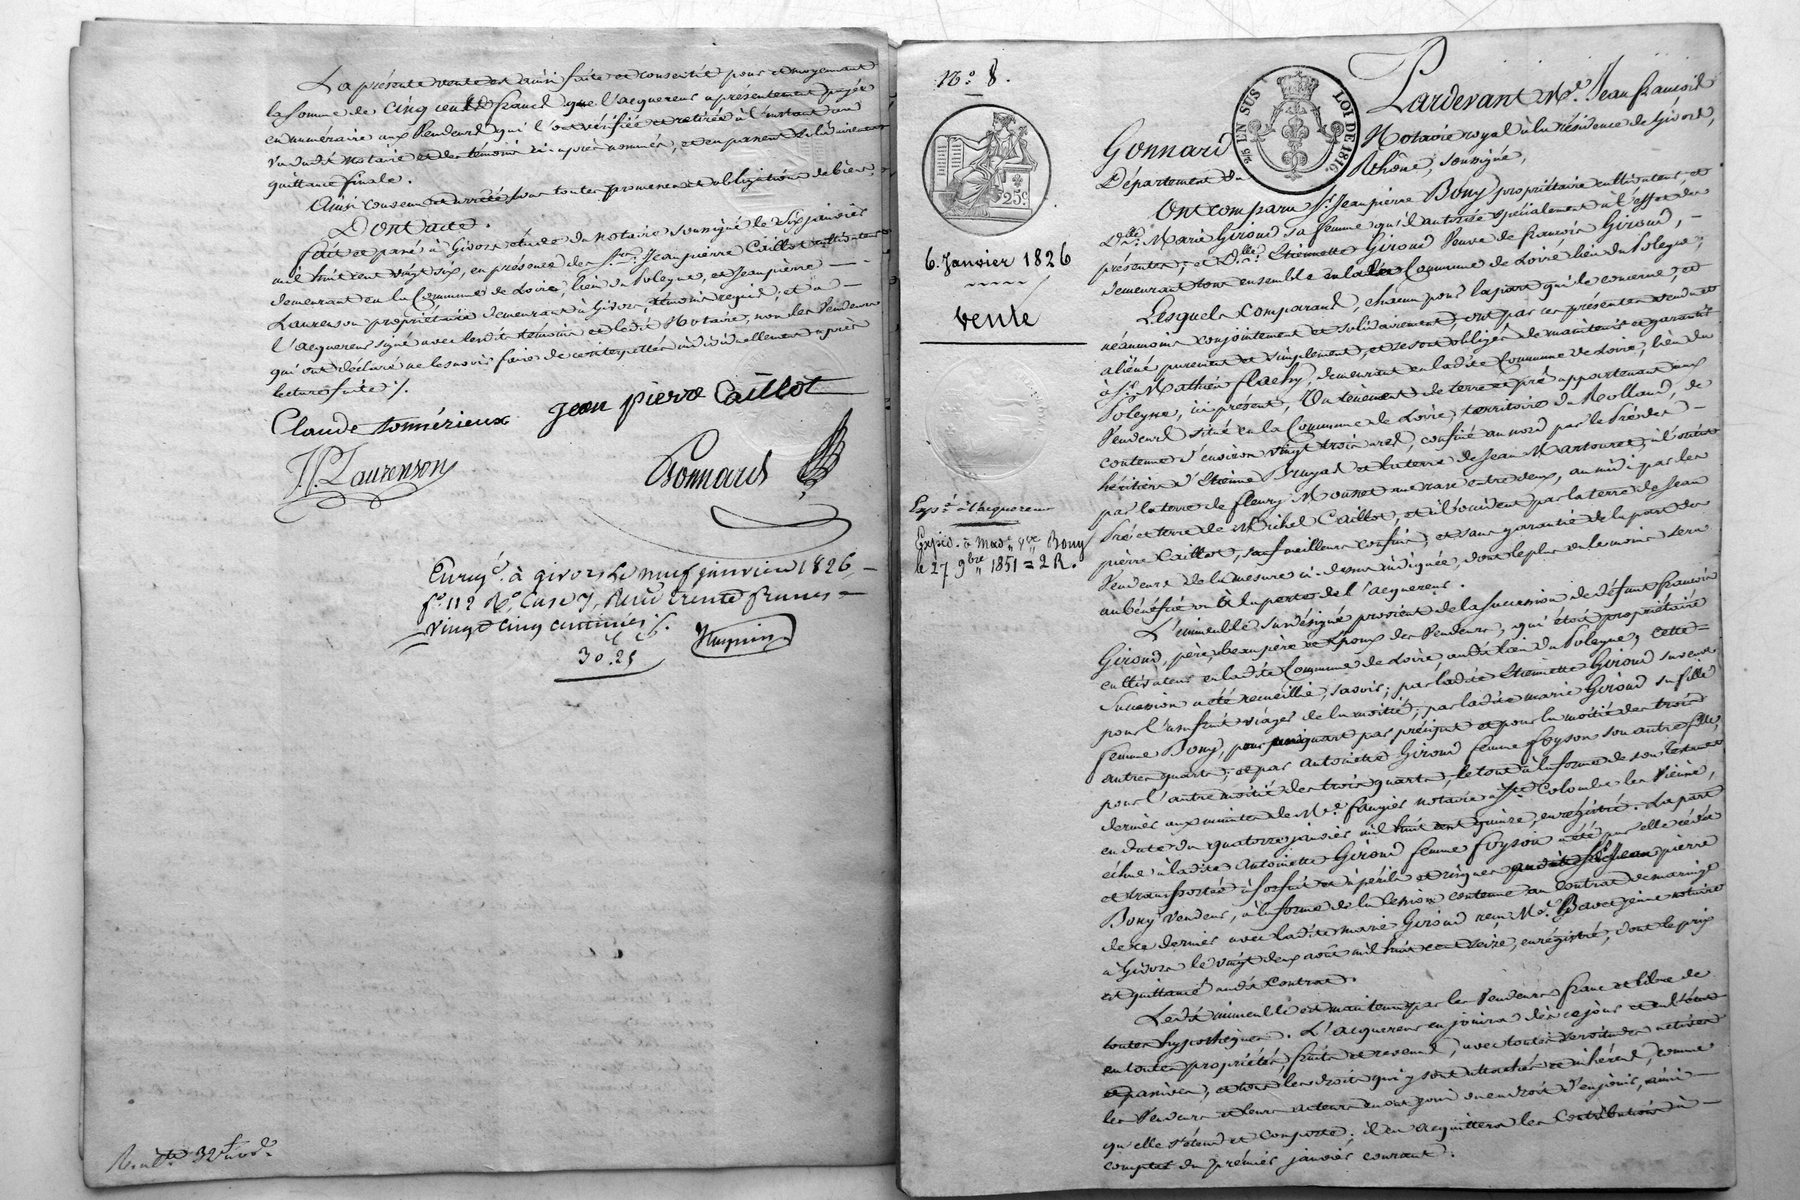 La présente vente est ainsi faite et consentie pour et moyennant
la somme de cinq cents francs que l'acquereur a présentement payée
en numéraire aux Vendeurs qui l'ont vérifiée et retirée à l'instant au
vu dudit notaire et des témoins ci après nommés, et en passent solidairement
quittance finale.
Ainsi convenu et arrêté sous toutes promesses et obligations de biens,
Dont acte.
fait et passé à Givors étude du notaire soussigné le six janvier
mil huit cent vingt six, en présence des Srs. Jean pierre Caillot cultivateur
demeurant en la Commune de Loire, lieu du Poleyne, et Jean pierre
Laurenson propriétaire demeurant à Givors, témoins requis, et a
l'acquereur signé avec lesdits témoins et ledit Notaire, non les Vendeurs
qui ont déclaré ne le savoir faire de ce interpellés individuellement après
lecture faite ./.
Claude tonnérieux Jean pierre Caillot
JP. Laurenson
Gonnard
Enregé. à givors le neuf janvier 1826,
fo. 112 Ro. Case 7, Reçu trente francs
vingt cinq centimes ./.
30.25
No. 8.
25 EN SUS
LOI DE 1816.
25c
6. Janvier 1826
Vente
Exp.é à l'acquereur
Expéd. à Mad. Vve Bony
le 27 9bre 1851 = 2 R.
Pardevant Me. Jean francois
Gonnard Notaire royal à la résidence de Givors,
Département du Rhône, soussigné,
Ont comparu Sr. Jean pierre Bony propriétaire cultivateur et
Dlle. Marie Giroud sa femme qu'il autorise spécialement à l'effet des
présentes; et Dlle. Etiennette Giroud Veuve de francois Giroud,
demeurant tous ensemble en la Commune de Loire lieu du Poleyne;
Lesquels Comparans, chacun pour la part qui le concerne, et
néanmoins conjointement et solidairement, ont par ces présentes vendu et
aliéné purement et simplement, et se sont obligés de maintenir et garantir
à Sr. Mathieu flachy, demeurant en ladite Commune de Loire, lieu du
Poleyne, ici présent, Un tènement de terre et pré appartenant aux
Vendeurs situé en la Commune de Loire, territoire du Rolland, de
contenue d'environ vingt trois ares, confiné au nord par le Pré des
héritiers d'Etienne Bruyas et la terre de Jean Martouret, à l'orient
par la terre de fleury Mousset une rase entre deux, au midi par les
Pré et terre de Michel Caillot, et à l'occident par la terre de Jean
pierre Caillot, sauf meilleurs confins, et sans garantie de la part des
Vendeurs de la mesure ci-dessus indiquée, dont le plus ou le moins sera
au bénéfice ou à la perte de l'acquereur.
L'immeuble susdésigné provient de la succession de défunt francois
Giroud, père, beau père et Epoux des Vendeurs, qui étoit propriétaire
cultivateur en ladite Commune de Loire, audit lieu du Poleyne, cette
Succession a été recueillie, savoir; par ladite Etiennette Giroud sa veuve
pour l'usufruit viager de la moitié; par ladite marie Giroud sa fille
femme Bony, pour un quart par préciput et pour la moitié des trois
autres quarts; et par Antoinette Giroud femme foyson son autre fille,
pour l'autre moitié des trois quarts, le tout à la forme de son testament
déposé aux minutes de Me. faugier notaire à Ste. Colombe les Vienne,
en date du quatorze janvier mil huit cent quinze, enregistré. La part
échue à ladite Antoinette Giroud femme foyson a été par elle cédée
et transportée à forfait et à périls et risques audit Sr. Jean pierre
Bony Vendeur, à la forme de la Cession contenue au Contrat de mariage
de ce dernier avec ladite marie Giroud reçu Me. jeune notaire
à Givors le vingt deux août mil huit cent seize, enregistré, dont le prix
est quittancé audit Contrat.
Ledit immeuble est maintenu par les Vendeurs franc et libre de
toutes hypothèques. L'acquereur en jouira dès ce jour
en toutes propriétés, fruits et revenus, avec toutes servitudes actives
et passives, et tous les droits qui y sont attachés et inhérens, comme
les Vendeurs et leurs auteurs en ont joui ou eu droit d'en jouir, ainsi
qu'elle s'étend et comporte; il en acquittera les Contributions à
compter du premier janvier courant.